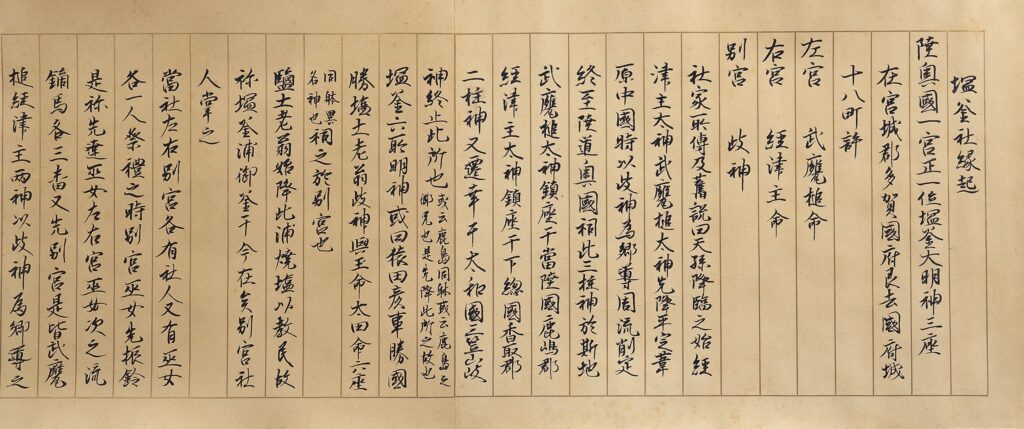 塩釜社縁起
陸奥國一宮正一位塩釜大明神三座
在宮城郡多賀國府艮去國府城
十八町許
左宮 武甕槌命
右宮 經津主命
別宮 岐神
社家所傳及舊說曰天孫降臨之始經
津主大神武甕槌大神先降平定葦
原中國時以岐神為鄉導周流削定
終至陸道奥國祠此三柱神於斯地
武甕槌大神鎮座于當陸國鹿嶋郡
經津主大神鎮座于下総國香取郡
二柱神又遷幸于大和國三笠山岐
神終止此所也或云鹿島同躰或云鹿島之御兄也是先降此所之故也
塩釜六所明神或曰猿田彦事勝國
勝塩土老翁岐神興玉命太田命六座
同躰異名神也祠之於別宮也
鹽土老翁始降此浦燒塩以教民故
祢塩釜浦御釜于今在矣別宮社
人掌之
當社左右別宮各有社人又有巫女
各一人祭禮之時別宮巫女先振鈴
是祢先達巫女左右宮巫女次之流
鏑馬各三番又先別宮是皆武甕
槌經津主両神以岐神為鄉導之